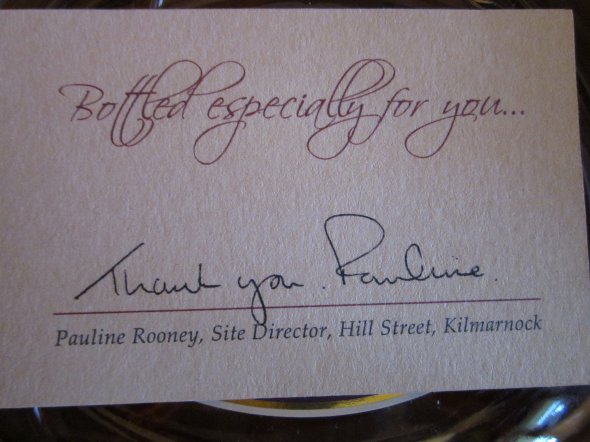 Bottled especially for you...
Thank you. Pauline.
Pauline Rooney, Site Director, Hill Street, Kilmarnock